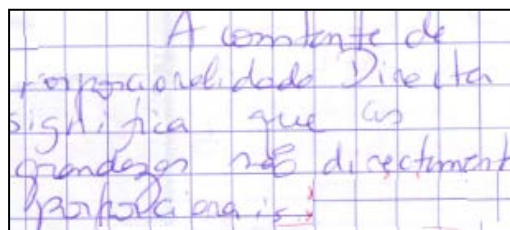 A comtante de
porporcionalidade Directa
significa que as
grandezas são directament
porporcionais.